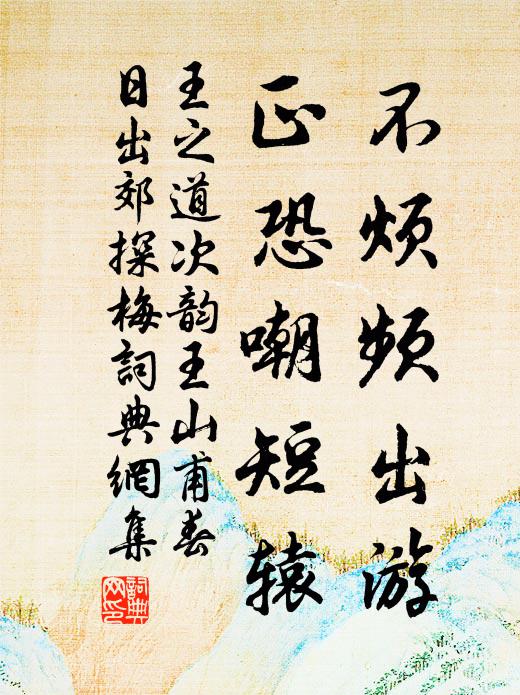 不烦频出游
正恐嘲短辕
王之道次韵王山甫春
日出郊探梅詞典網集
詞典网印